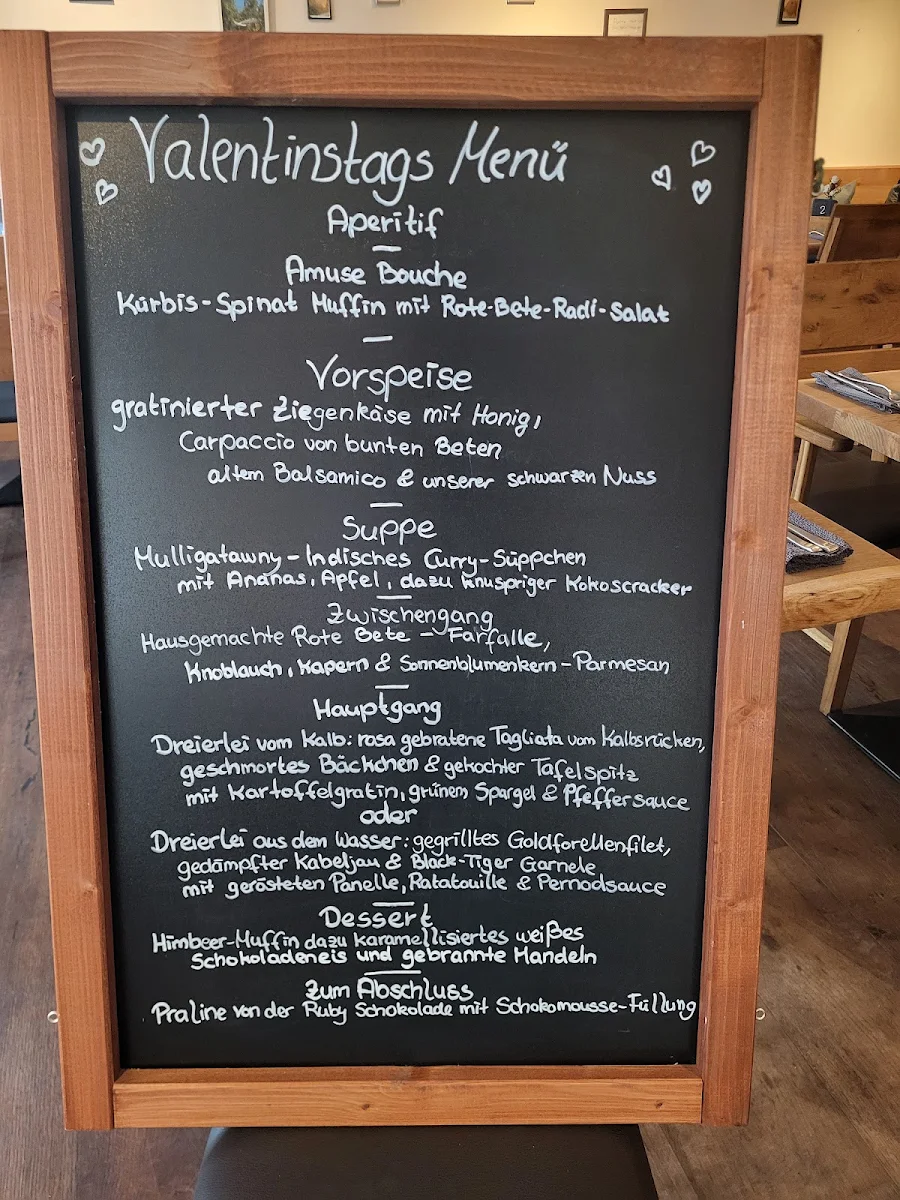 Valentinstags Menü
Aperitif
Amuse Bouche
Kürbis-Spinat Muffin mit Rote-Bete-Radi-Salat
Vorspeise
gratinierter Ziegenkäse mit Honig,
Carpaccio von bunten Beten
altem Balsamico & unserer schwarzen Nuss
Suppe
Mulligatawny-Indisches Curry-Süppchen
mit Ananas, Apfel, dazu knuspriger Kokoscracker
Zwischengang
Hausgemachte Rote Bete - Farfalle,
Knoblauch, Kapern & Sonnenblumenkern-Parmesan
Hauptgang
Dreierlei vom Kalb: rosa gebratene Tagliata vom Kalbsrücken,
geschmortes Bäckchen & gekochter Tafelspitz
mit Kartoffelgratin, grünem Spargel & Pfeffersauce
oder
Dreierlei aus dem Wasser: gegrilltes Goldforellenfilet,
gedämpfter Kabeljau & Black-Tiger Garnele
mit gerösteten Panelle, Ratatouille & Pernodsauce
Dessert
Himbeer-Muffin dazu karamellisiertes weißes
Schokoladeneis und gebrannte Mandeln
Zum Abschluss
Praline von der Ruby Schokolade mit Schokomousse-Füllung
2